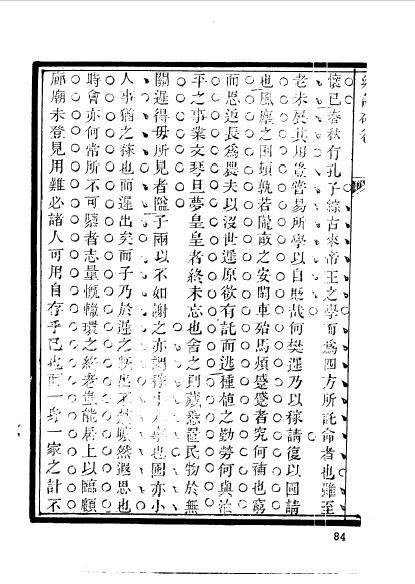 懷已春秋有孔子綜古來帝王之學而為四方所託命者也雖至
老未展其用豈嘗易所學以自貶哉何樊遲乃以稼請復以圃請
也風塵之困頓孰若隴畝之安閒車殆馬煩蹙蹙者究何補也窮
而思返長為農夫以沒世遲原欲有託而逃種植之勤勞何與治
平之事業文琴旦夢皇皇者終未忘也舍之則藏悉置民物於無
關遲得毋所見者隘子兩以不如謝之亦謂稼圃亦小
人事猶之稼也而遲出矣而子乃於遲之然遐思也
時會亦何常所不可懸者志量慨轍環之終老豈能居上以臨顧
廊廟未登見用難必諸人可用自存乎己也而一身一家之計不
84